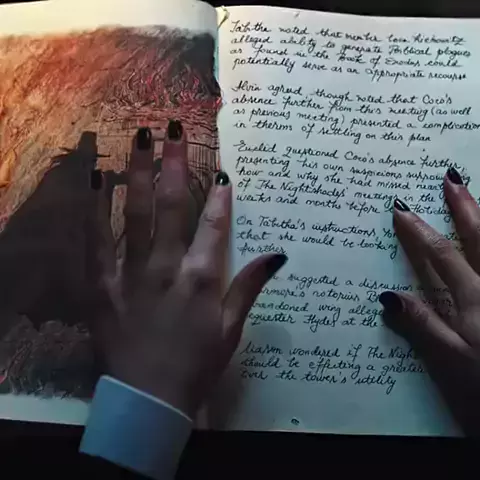 Tabitha noted that member Coco
alleged ability to generate Biblical plagues
as found in the Book of Exodus could
potentially serve as an appropriate recourse
Alvin agreed, though noted that Coco's
absence further from this meeting (as well
as previous meeting) presented a complication
in therms of settling on this plan
Euclid questioned Coco's absence further,
presenting his own suspicions surrounding
how and why she had missed
of The Nightshades' meeting in the
weeks and months before Holiday
On Tabitha's instructions,
that she would be looking
further
suggested a discussion
notorius
abandoned wing
Hydes at the
wondered if The
should be effecting a greater
over the tower's utility